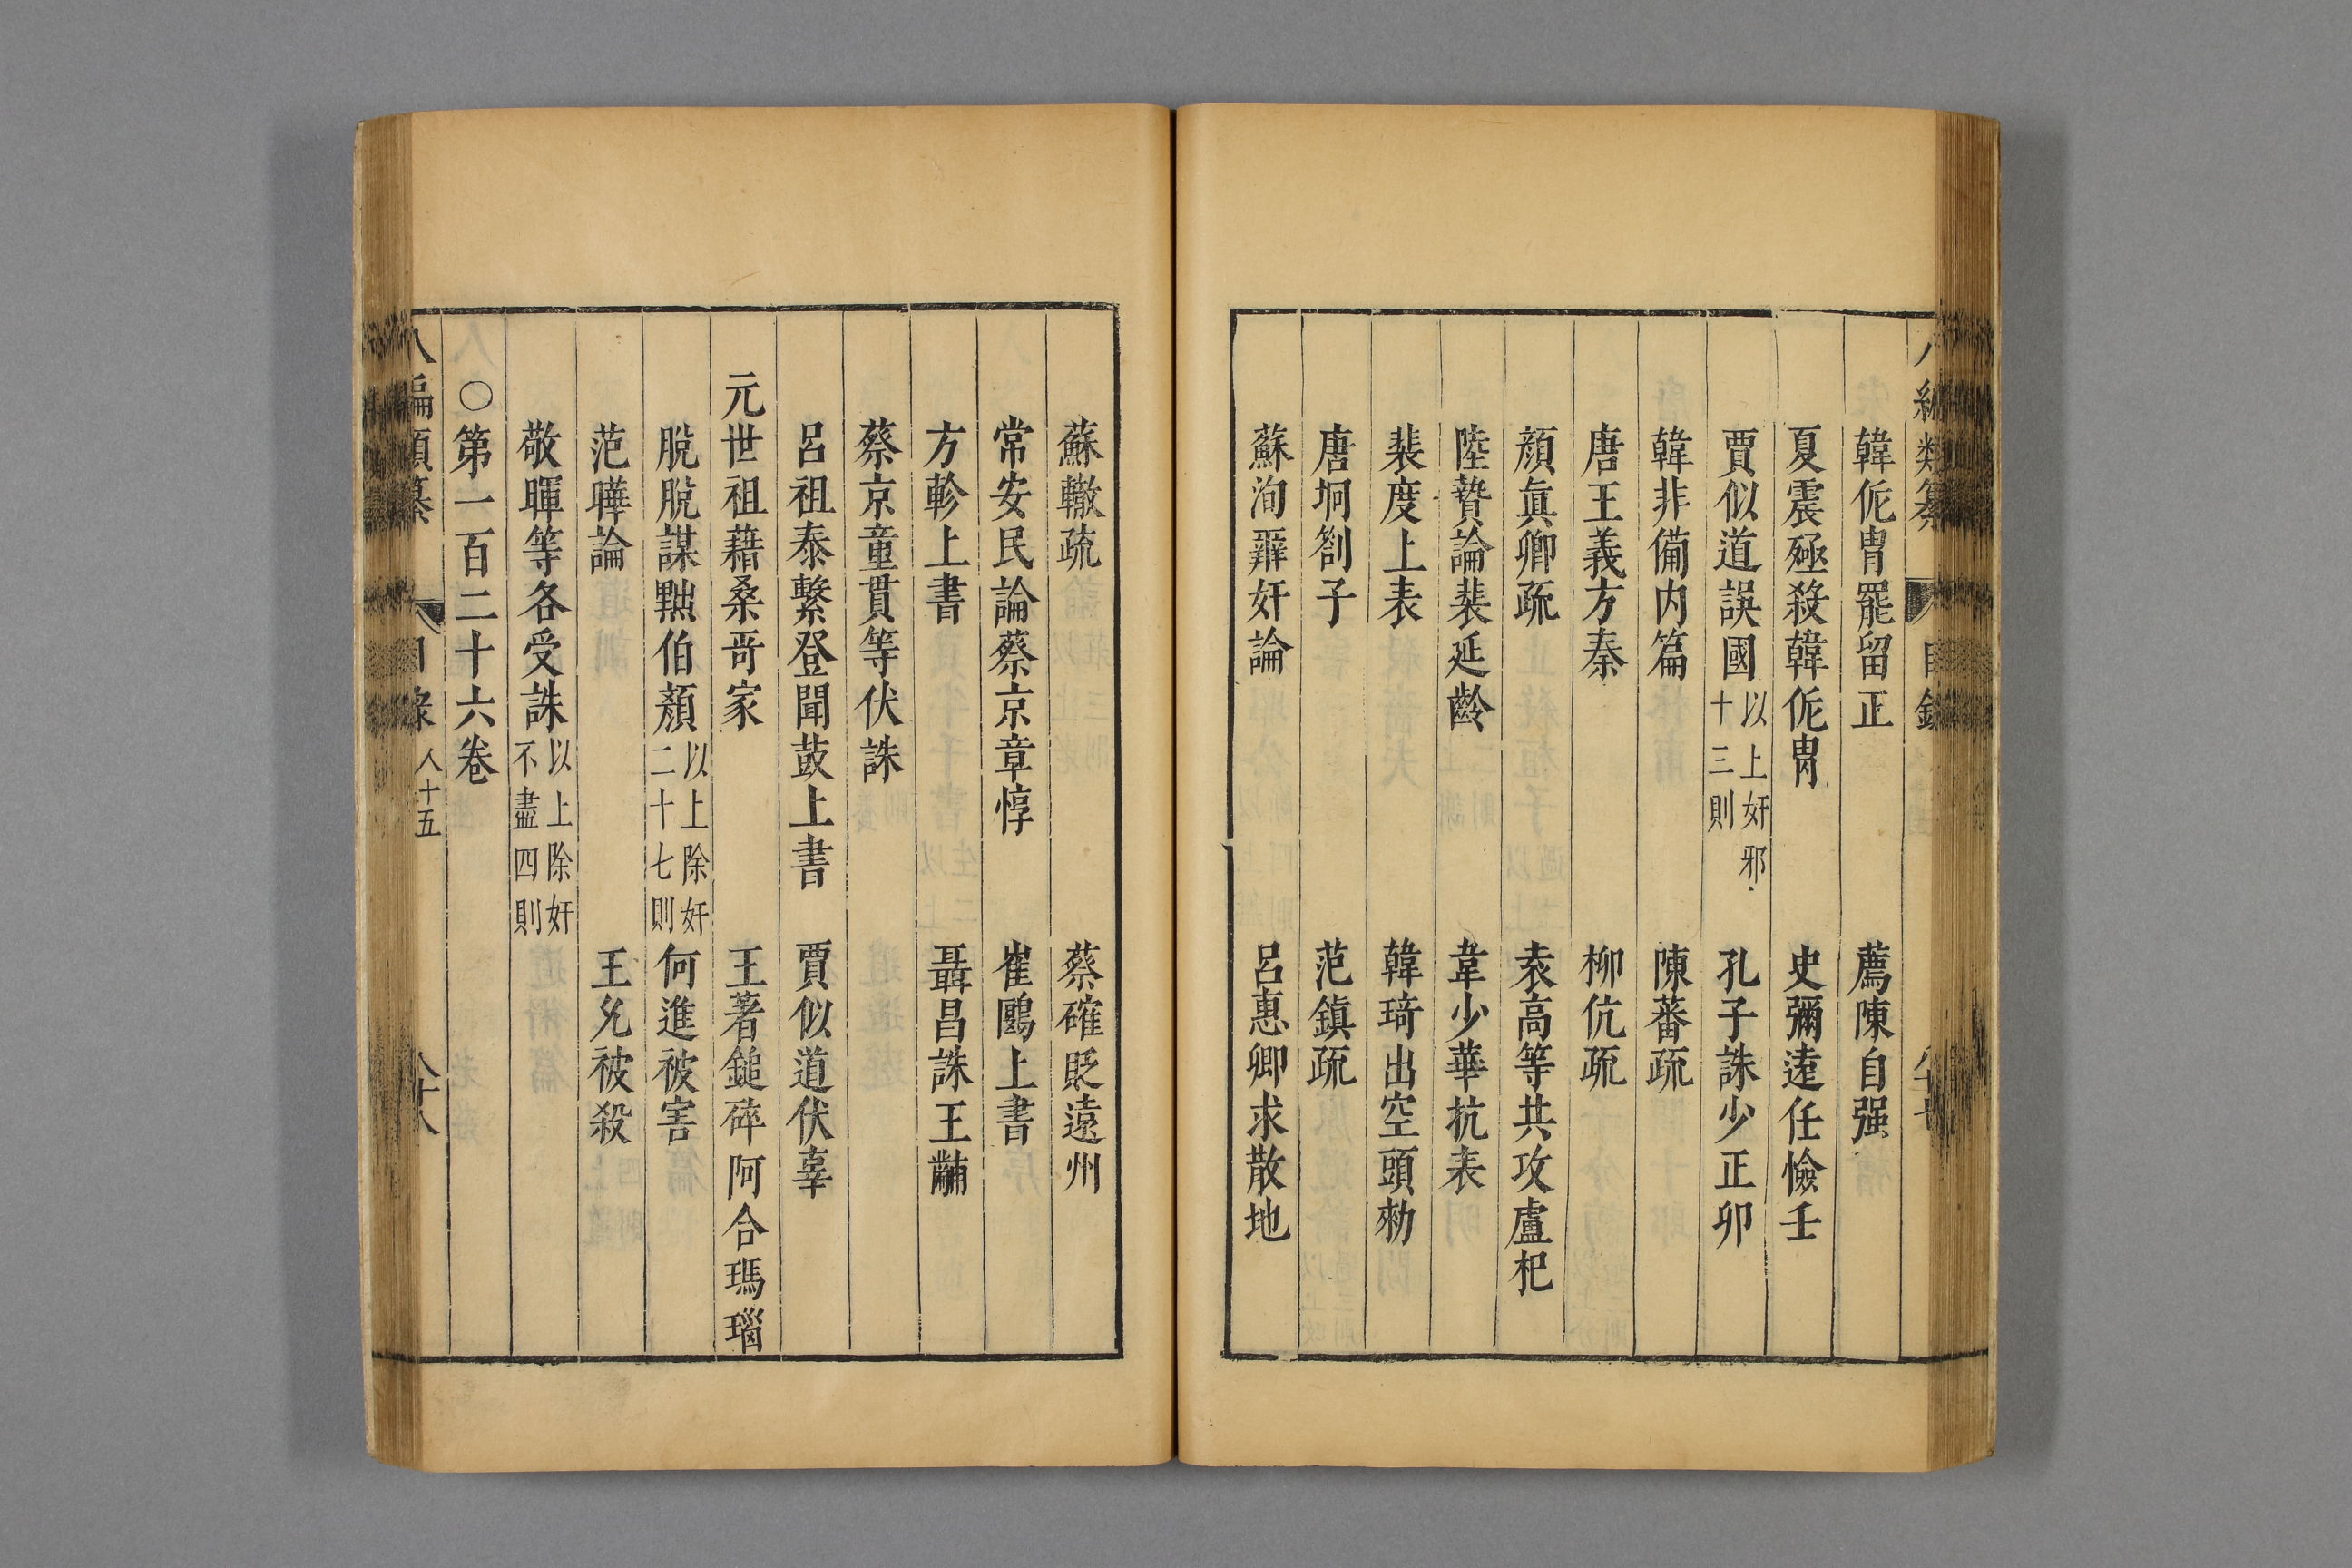 韓侂胄罷留正　薦陳自强
夏震殛殺韓侂胄　史彌遠任憸壬
賈似道誤國以上奸邪十三則　孔子誅少正卯
韓非備内篇　陳蕃疏
唐王義方奏　柳伉疏
顔眞卿疏　袁高等共攻盧杞
陸贄論裴延齡　韋少華抗表
裴度上表　韓琦出空頭勑
唐坰劄子　范鎭疏
蘇洵辯奸論　呂惠卿求散地
蘇轍疏　蔡確貶遠州
常安民論蔡京章惇　崔鶠上書
方軫上書　聶昌誅王黼
蔡京童貫等伏誅
呂祖泰繫登聞鼓上書　賈似道伏辜
元世祖藉桑哥家　王著鎚碎阿合瑪瑙
脫脫謀黜伯顔以上除奸二十七則　何進被害
范曄論　王允被殺
敬暉等各受誅以上除奸不盡四則
○第一百二十六卷
八編類纂　目錄　人十五　八十八